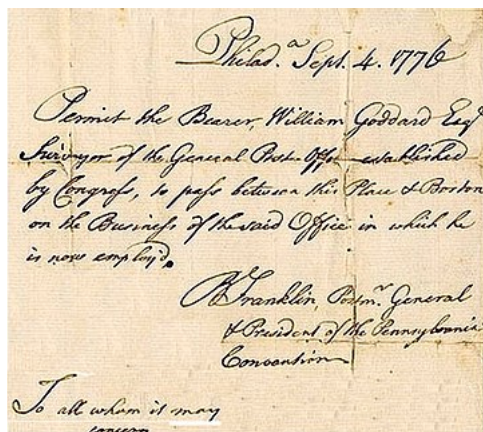 Philad.ª Sept. 4. 1776
Permit the Bearer, William Goddard Esqʳ
Surveyor of the General Post Office established
by Congress, to pass between this Place & Boston
on the Business of the said Office in which he
is now employ'd.
B Franklin, Postmʳ. General
& President of the Pennsylvania
Convention
To all whom it may
concern